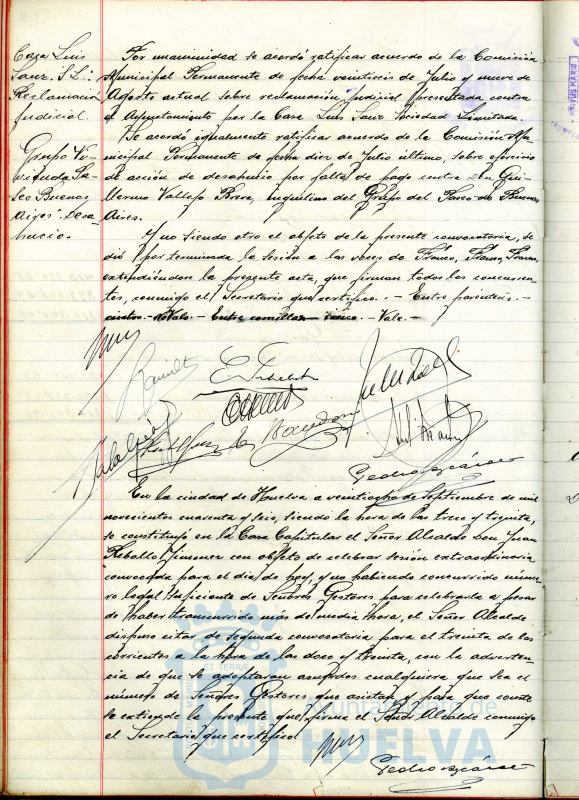 Casa Luis
Sanz. S.L.:
Reclamación
judicial.
Por unanimidad se acordó ratificar acuerdo de la Comisión
Municipal Permanente de fecha veintiseis de Julio y nueve de
Agosto actual sobre reclamación judicial presentada contra
el Ayuntamiento por la Casa Luis Sanz Sociedad Limitada.
Grupo Vi-
vienda Pa-
seo Buenos
Aires: Desa-
hucio.
Se acordó igualmente ratificar acuerdo de la Comisión Mu-
nicipal Permanente de fecha diez de Julio último, sobre ejercicio
de acción de desahucio por falta de pago contra Don Gui-
llermo Vallejo inquilino del Grupo del Paseo de Buenos
Aires.
Y no siendo otro el objeto de la presente convocatoria, se
dió por terminada la sesión a las voces de Franco, Franco, Franco,
extendiéndose la presente acta, que firman todos los concurren-
tes, conmigo el Secretario que certifico. – Entre paréntesis. –
– no Vale. – Entre comillas – – Vale. –
En la ciudad de Huelva a veintiocho de Septiembre de mil
novecientos cuarenta y seis, siendo la hora de las trece y treinta,
se constituyó en la Casa Capitular el Señor Alcalde Don Juan
Rebollo Jimenez con objeto de celebrar sesión extraordinaria
convocada para el día de hoy, y no habiendo concurrido núme-
ro legal suficiente de Señores Gestores para celebrarla a pesar
de haber transcurrido más de media hora, el Señor Alcalde
dispuso citar de segunda convocatoria para el treinta de los
corrientes a la hora de las doce y treinta, con la adverten-
cia de que se adoptaran acuerdos cualquiera que sea el
número de Señores Gestores que asistan y para que conste
se extiende la presente que firma el Señor Alcalde conmigo
el Secretario que certifico.
Ayuntamiento de
HUELVA